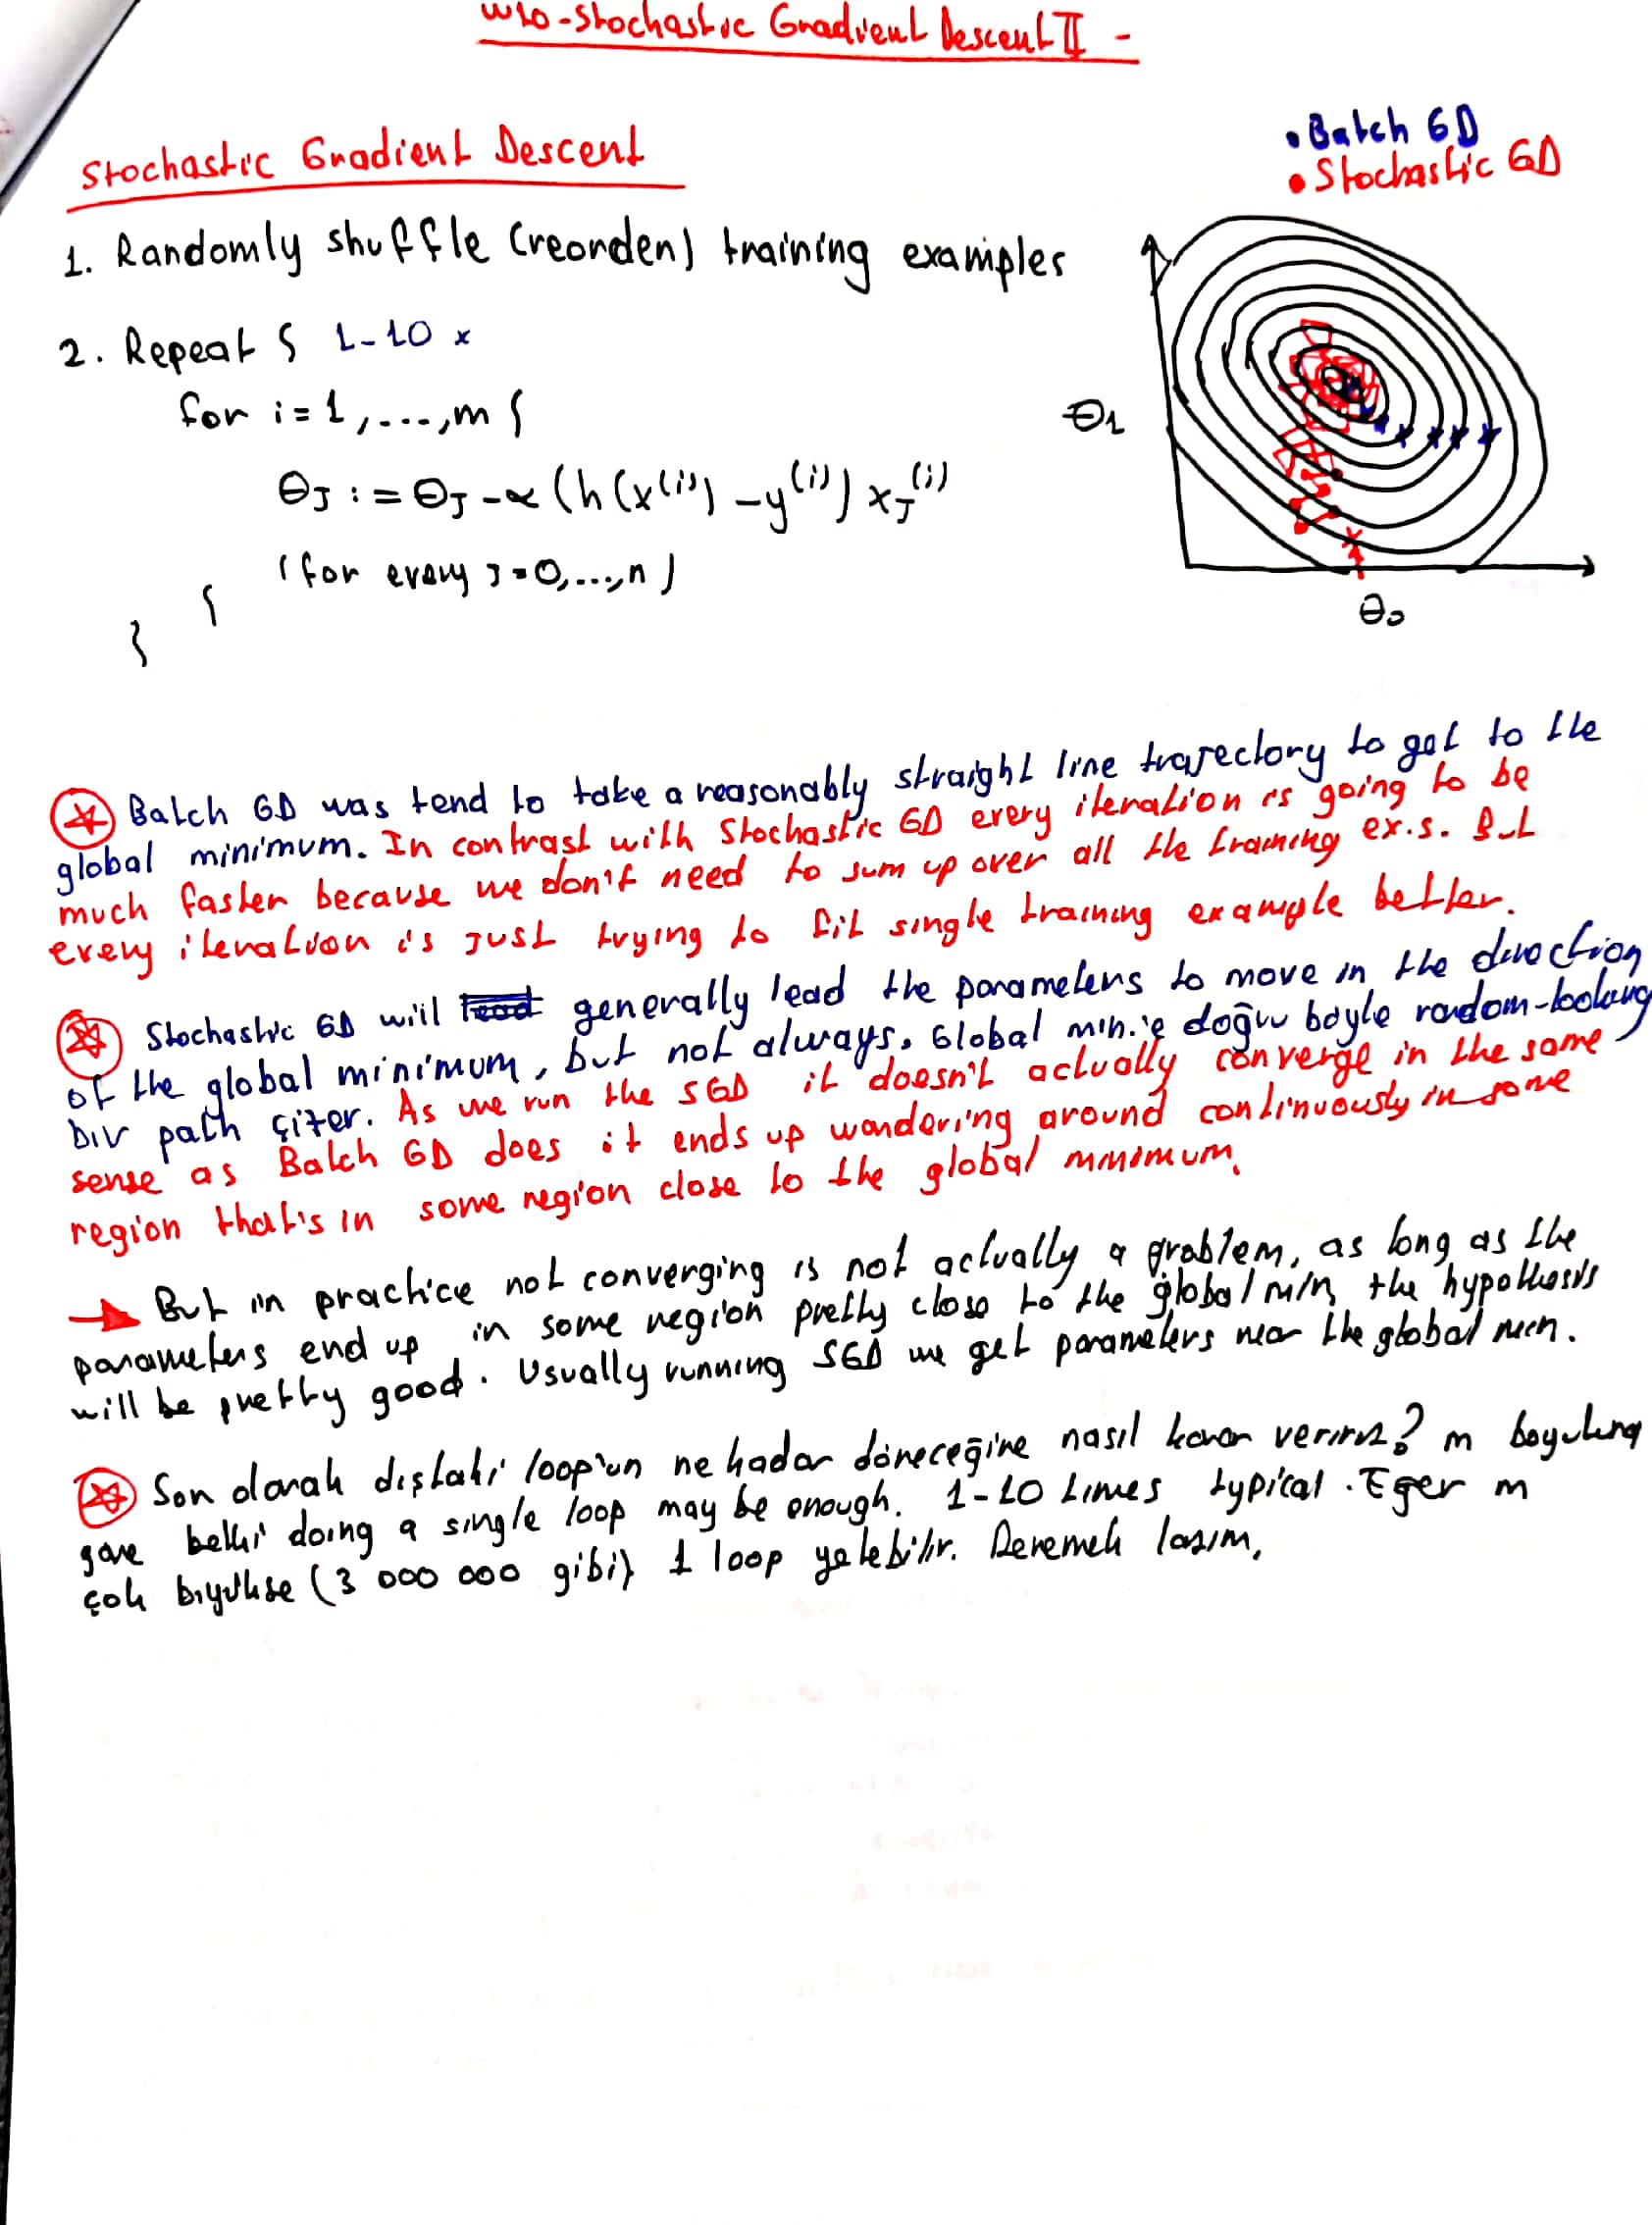 W10-Stochastic Gradient Descent II -
Stochastic Gradient Descent
• Batch GD
• Stochastic GD
1. Randomly shuffle (reorder) training examples
2. Repeat { 1-10 x
for i = 1,...,m {
θJ := θJ - α (h(x(i)) - y(i)) xJ(i)
(for every J=0,...,n)
}
}
θ1
θ0
Batch GD was tend to take a reasonably straight line trajectory to get to the
global minimum. In contrast with Stochastic GD every iteration is going to be
much faster because we don't need to sum up over all the training ex.s. But
every iteration is just trying to fit single training example better.
Stochastic GD will lead generally lead the parameters to move in the direction
of the global minimum, but not always. Global min.'e doğru böyle random-looking
bir path çizer. As we run the SGD it doesn't actually converge in the same
sense as Batch GD does it ends up wandering around continuously in some
region that's in some region close to the global minimum.
→ But in practice not converging is not actually a problem, as long as the
parameters end up in some region pretty close to the global min, the hypothesis
will be pretty good. Usually running SGD we get parameters near the global min.
Son olarak dıştaki loop'un ne kadar döneceğine nasıl karar veririz? m boyutuna
göre belki doing a single loop may be enough. 1-10 times typical. Eğer m
çok büyükse (3 000 000 gibi) 1 loop yetebilir. Denemek lazım.